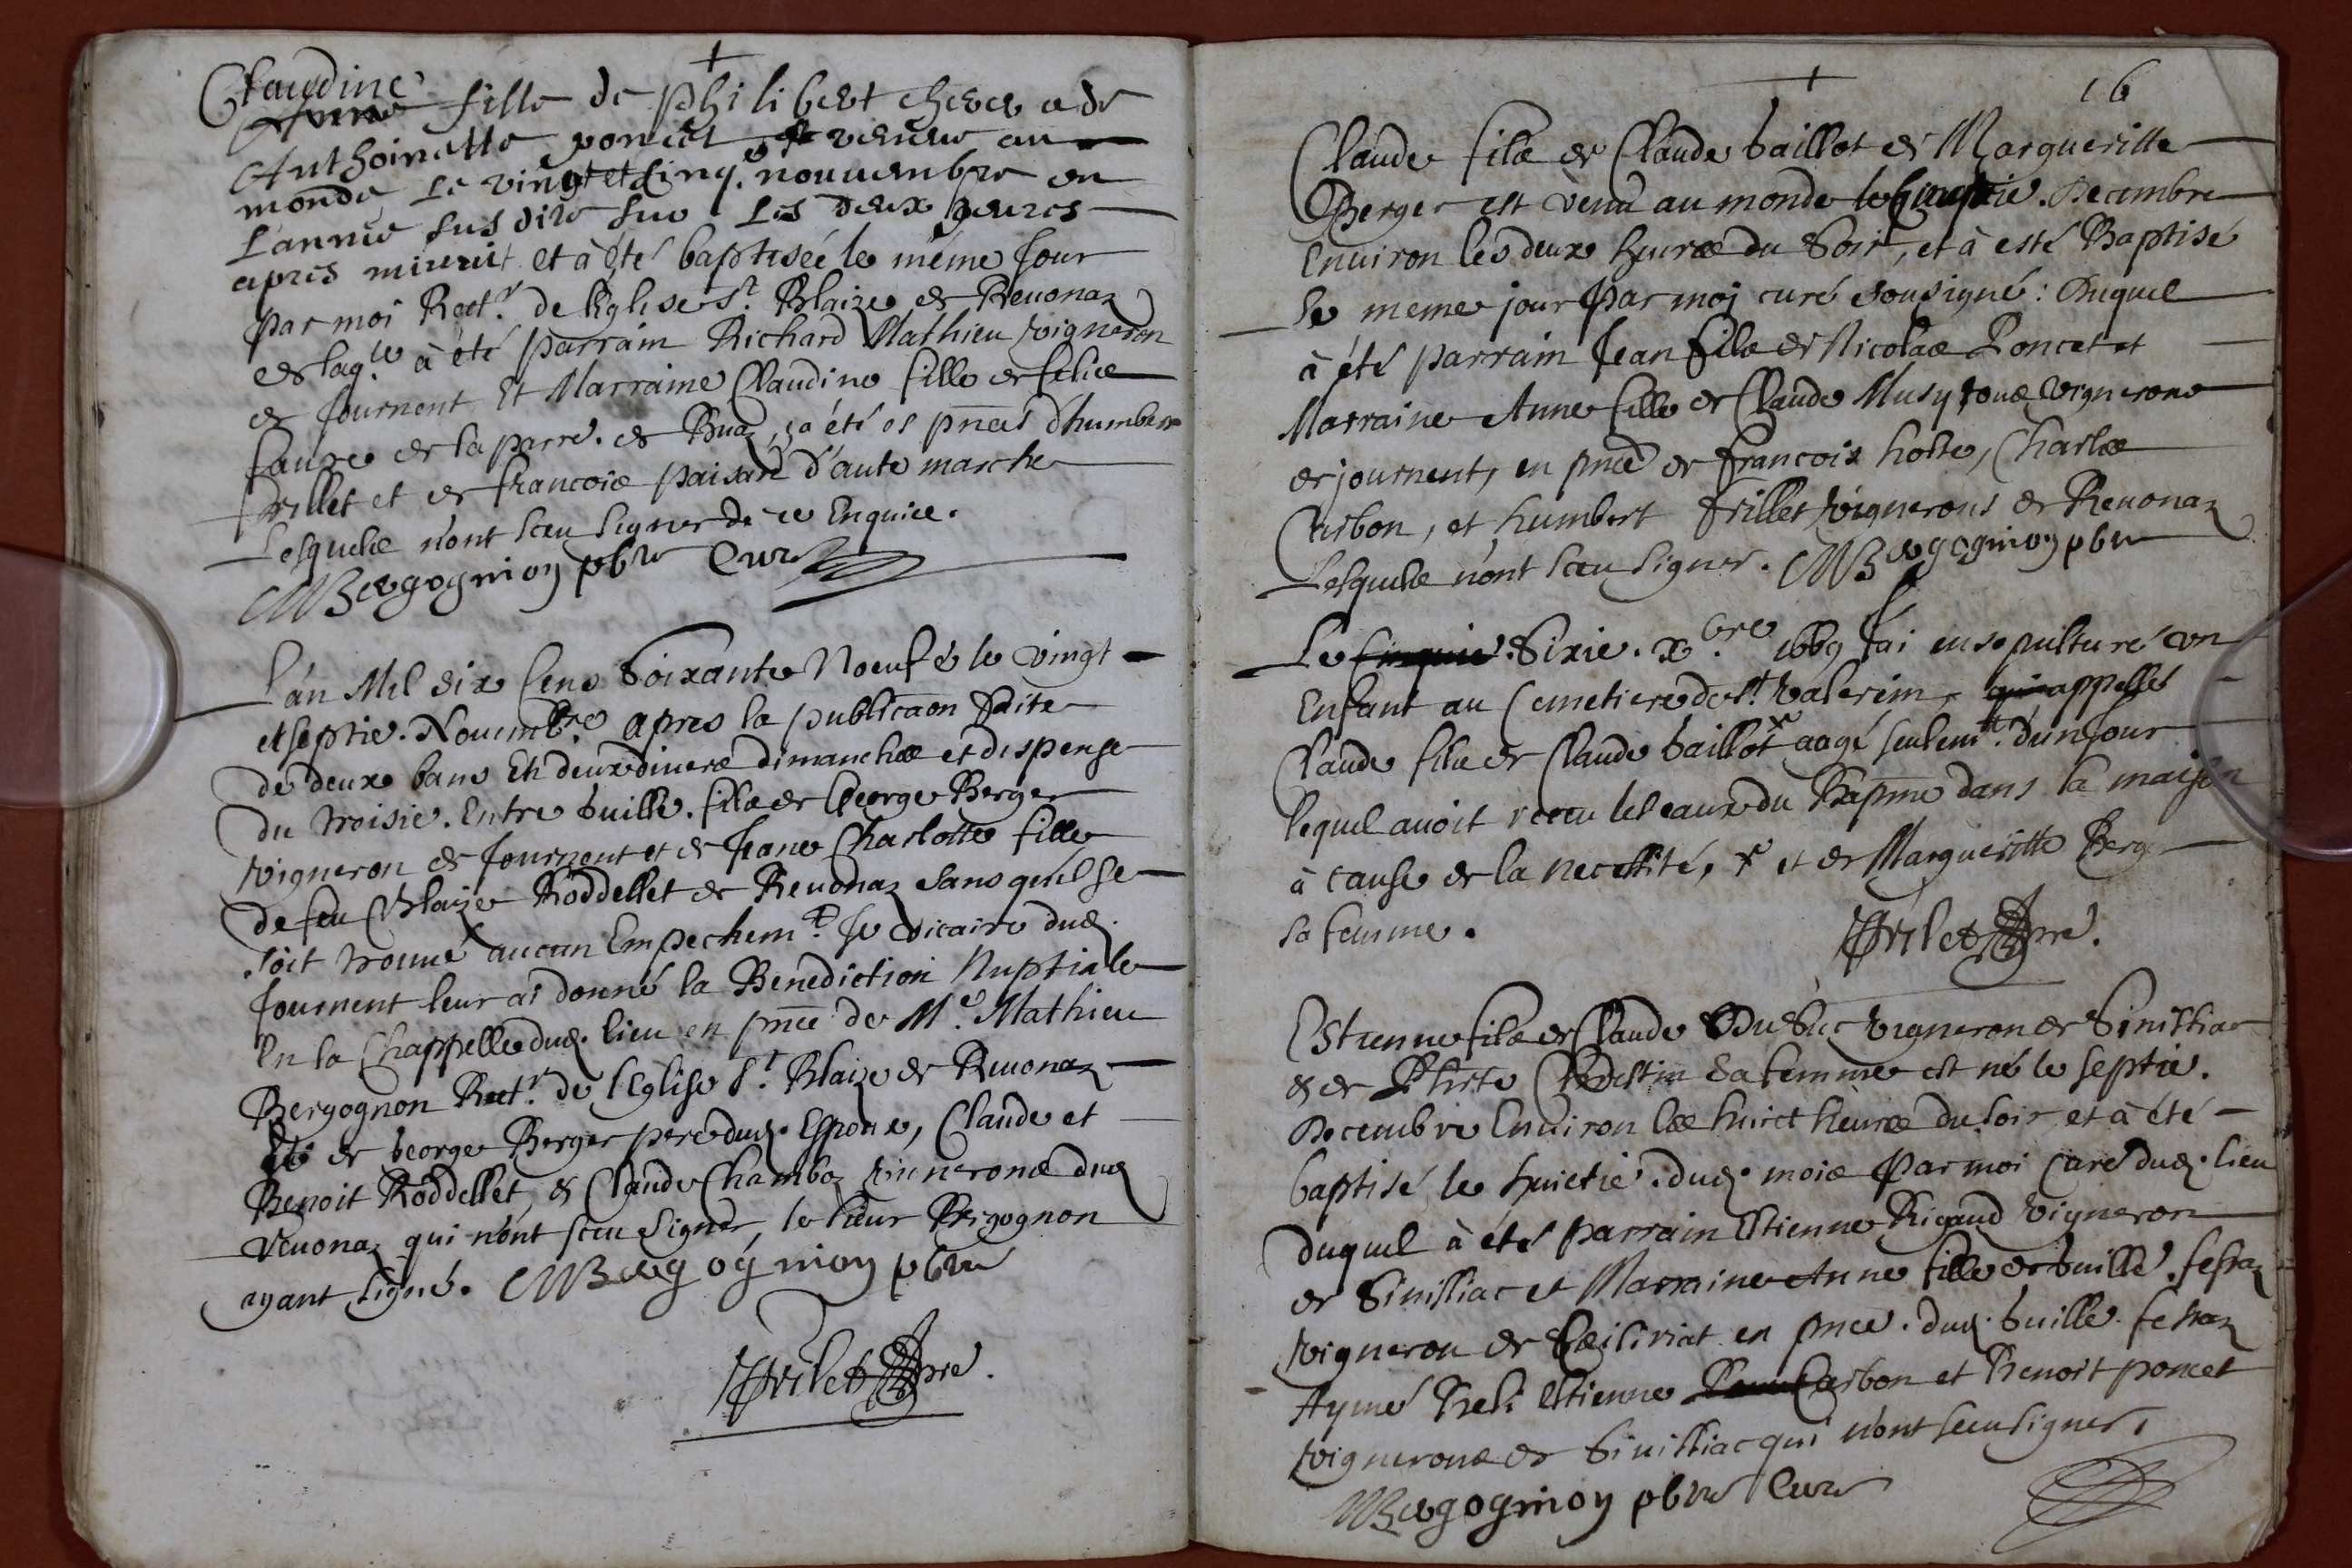 +
Claudine
fille de philibert
Anthoinette poncet venue au
monde le vingt et cinq. nouuembre en
L'annee susdite sur les deux heures
apres minuit et à été baptisée le même Jour
par moi Rect.r de l'Eglise s.t Blaize de Reuonaz
de laq.le à été parrain Richard Mathieu vigneron
de Journent Et Marraine Claudine fille de felice
faure de la parre. de
Trillet et de francois paisant d'aute marche
Lesquels n'ont sceu signer de ce Enquis.
MBergognion pbre Cure
L'an Mil six cens Soixante Noeuf & le vingt
et septie. Nouembre apres la publicaon faite
de deux bans En deux diuers dimanches et dispense
du troisie. Entre Guille. fils de George Berger
vigneron de Journent et de Jeane Charlotte fille
de feu Blaize Roddellet de Reuonaz sans qu'il se
soit trouué aucun Empechem.t Je vicaire dud.
Journent leur ai donné la Benediction Nuptiale
En la Chappelle dud. lieu en pnce de M.e Mathieu
Bergognon Rect.r de l'Eglise S.t Blaize de Reuonaz
de George Berger pere dud. Espoux, Claude et
Benoit Roddellet, & Claude Chamboz vignerons dud
Reuonaz qui n'ont sceu signer, le sieur Bergognon
ayant signé. MBergognion pbre
Trilet pre.
+
16
Claude fils de Claude baillot et Margueritte
Berger est venu au monde le Decembre
Enuiron les deux heures du Soir, et à esté Baptisé
le meme jour par moj curé sousigné: Duquel
à été parrain Jean fils de Nicolas Poncet et
Marraine Anne fille de Claude Musy tous vignerons
de journent, en pnce de francois hotte, Charles
Carbon, et humbert Trillet vignerons de Reuonaz
Lesquels n'ont sceu signer. MBergognion pbre
Le Sixie. X.bre 1669 J'ai ensepulturé un
Enfant au Cemetiere de s.t valerim, appellé
Claude fils de Claude baillot aagé seulem.t d'un Jour
lequel auoit receu les eaux du Bapme dans la maison
à cause de la necessité, et de Margueritte Berger
sa femme.
Trilet pre.
Estienne fils de Claude Dubuc vigneron de Sinissiac
& de sa femme est né le septie.
Decembre Enuiron les huict heures du soir et à été
baptisé le huictie. dud. mois par moi Curé dud. lieu
duquel à été parrain Estienne Rigaud vigneron
de Sinissiac et Marraine Anne fille de Guille. festaz
vigneron de en pnce. dud. Guille. festaz
Aymé Estienne Carbon et Benoit poncet
vignerons de Sinissiac qui n'ont sceu signer,
MBergognion pbre Cure